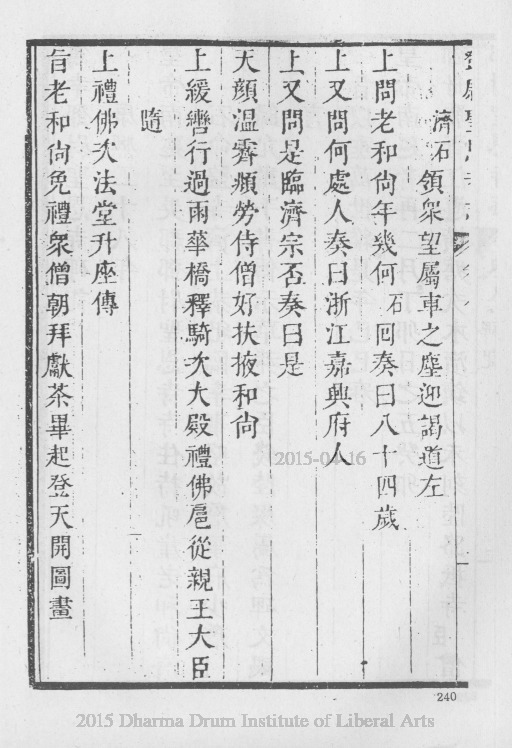 濟石領衆望屬車之塵迎謁道左
上問老和尙年幾何石回奏曰八十四歲
上又問何處人奏曰浙江嘉興府人
上又問是臨濟宗否奏曰是
天顏溫霽頻勞侍僧好扶掖和尙
上緩轡行過雨華橋釋騎次大殿禮佛扈從親王大臣
隨
上禮佛次法堂升座傳
旨老和尙免禮衆僧朝拜獻茶畢起登天開圖畫
240
2015-04-16
2015 Dharma Drum Institute of Liberal Arts